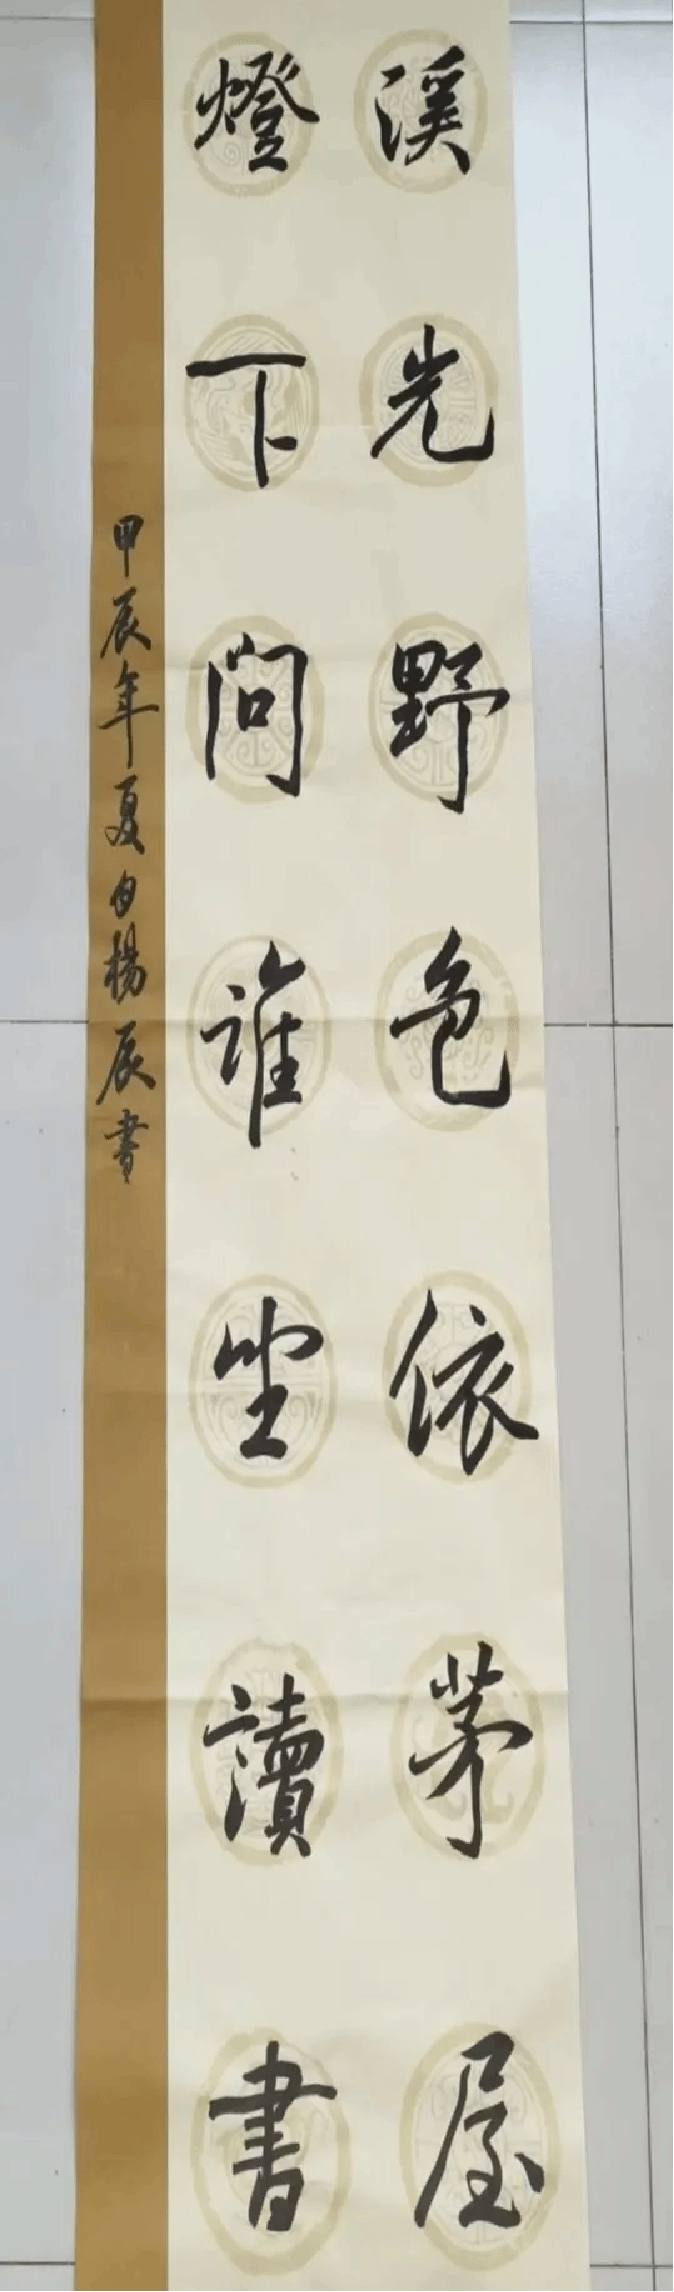 溪光野色依茅屋
燈下問誰坐讀書
甲辰年夏月楊辰書